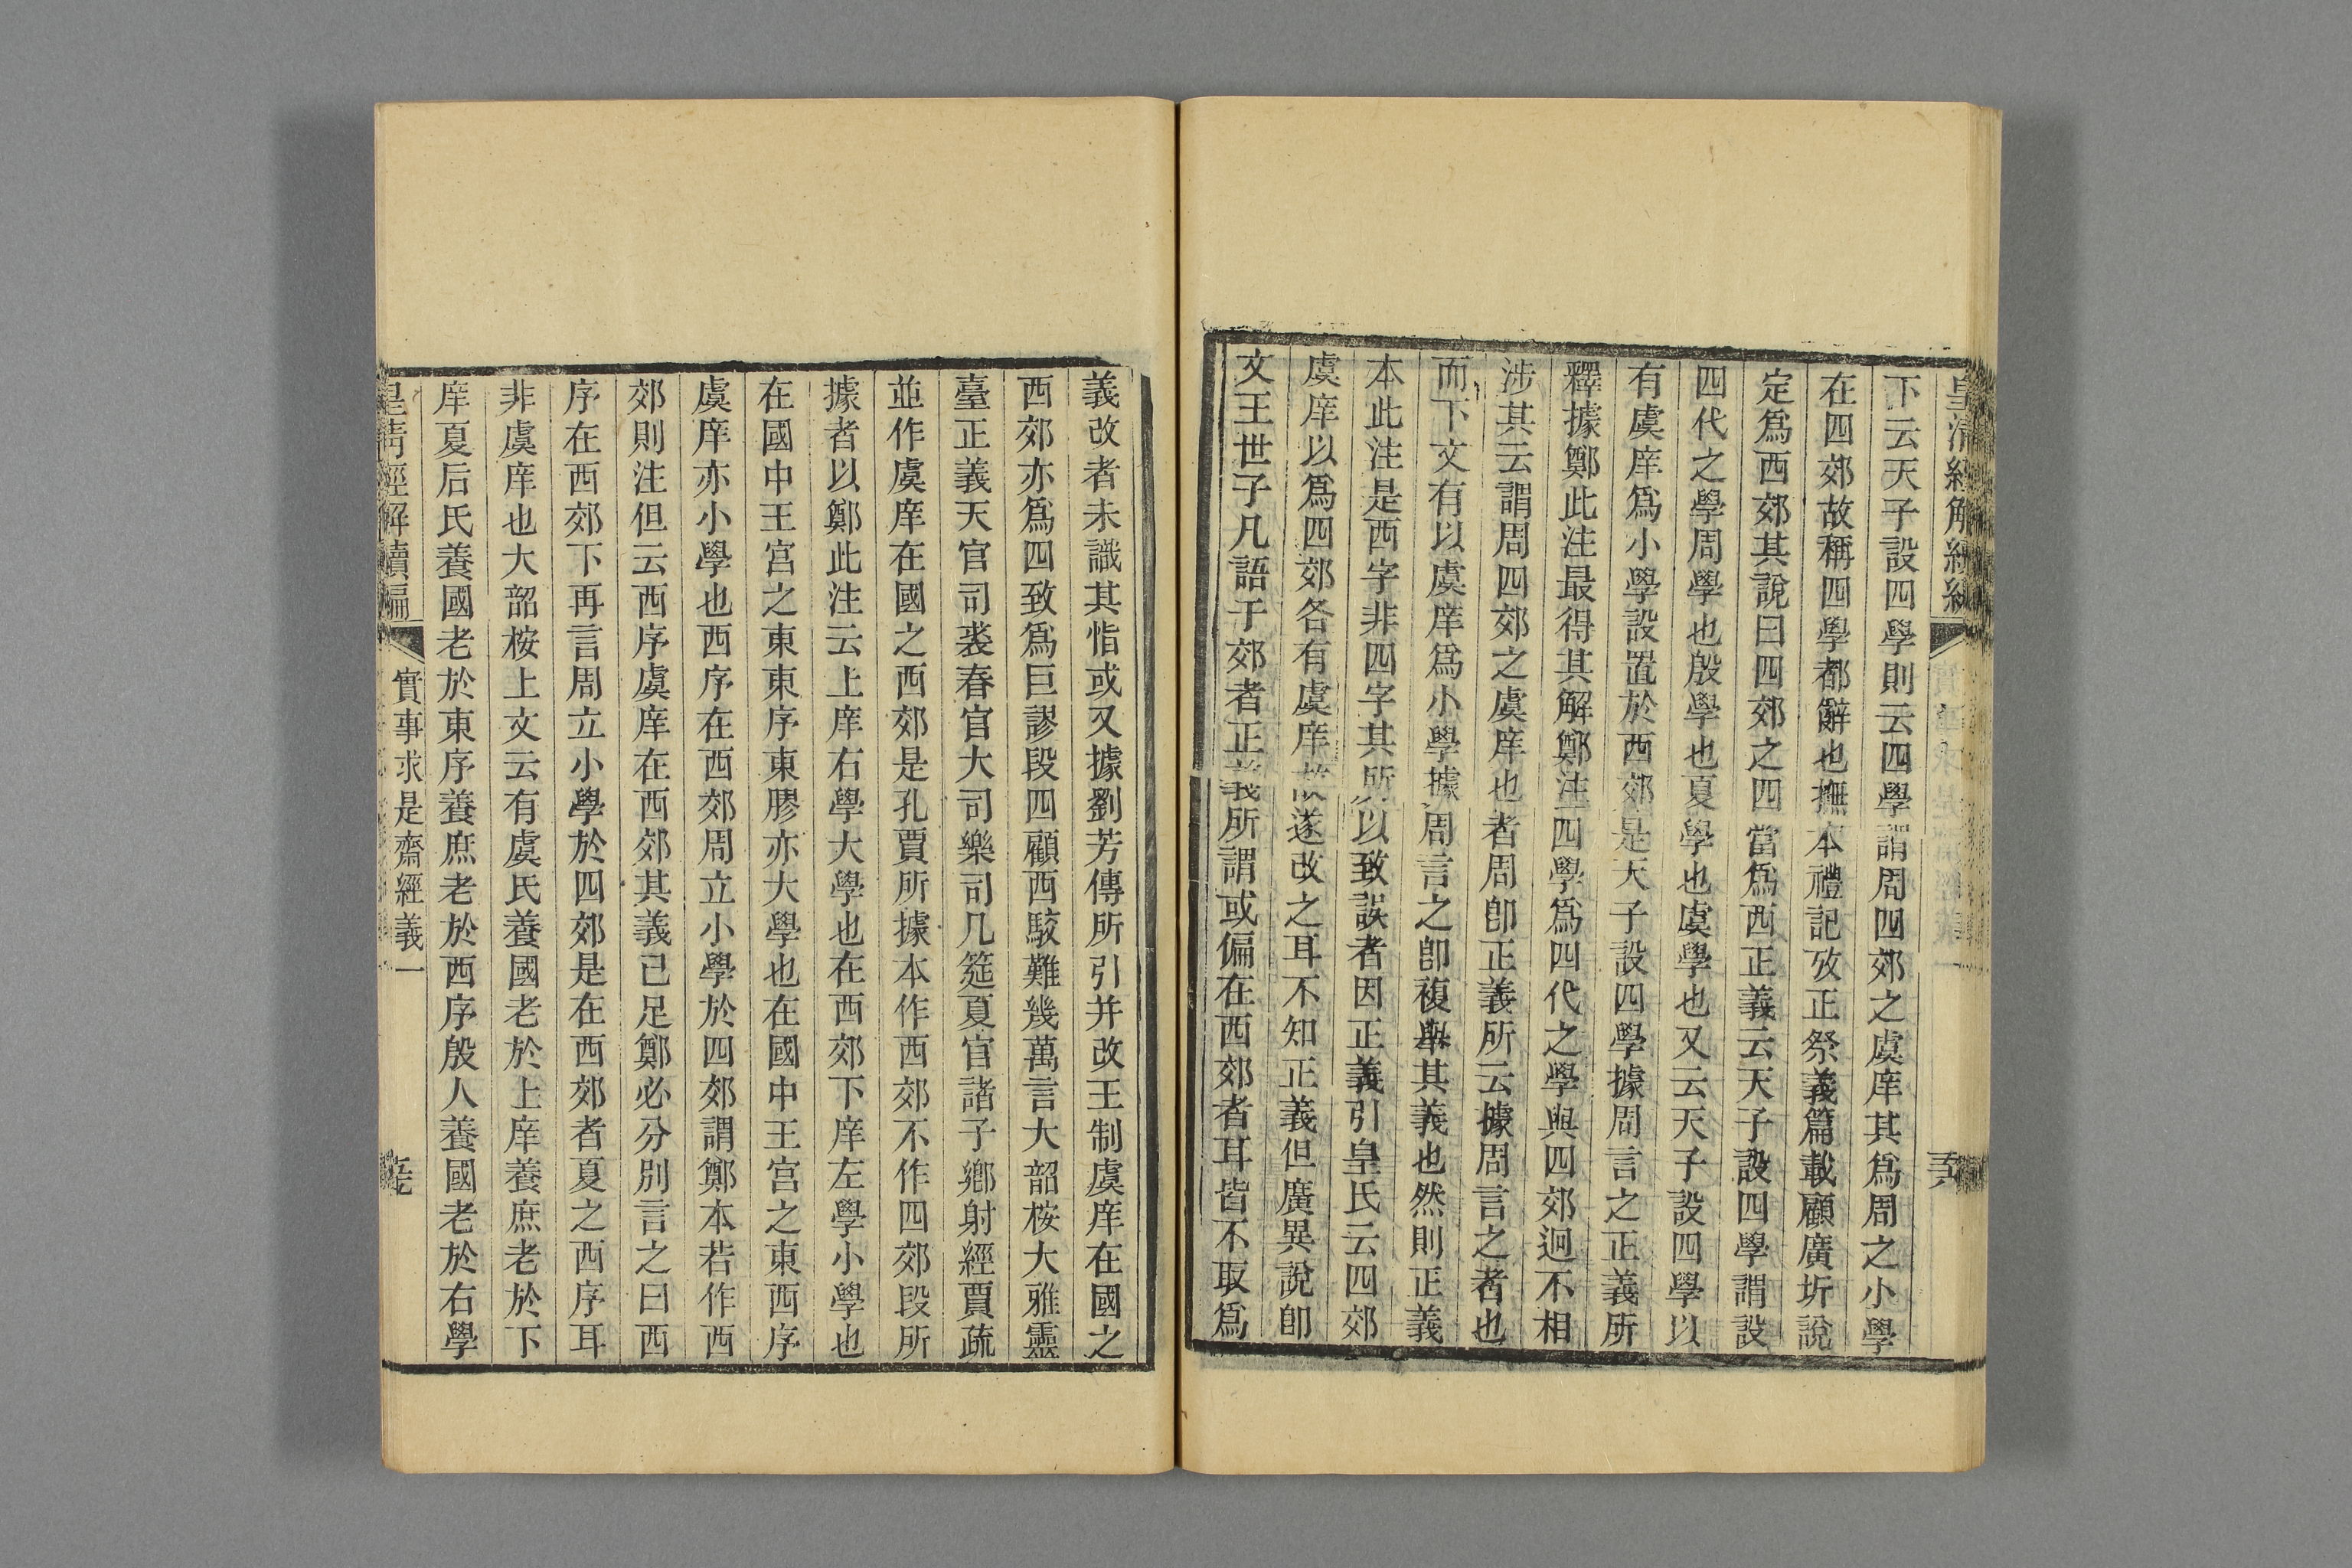 皇清經解續編
下云天子設四學則云四學謂周四郊之虞庠其爲周之小學
在四郊故稱四學都辭也撫本禮記攷正祭義篇載顧廣圻說
定爲西郊其說曰四郊之四當爲西正義云天子設四學謂設
四代之學周學也殷學也夏學也虞學也又云天子設四學以
有虞庠爲小學設置於西郊是天子設四學據周言之正義所
釋據鄭此注最得其解鄭注四學爲四代之學與四郊迥不相
涉其云謂周四郊之虞庠也者周卽正義所云據周言之者也
而下文有以虞庠爲小學據周言之卽複舉其義也然則正義
本此注是西字非四字其所以致誤者因正義引皇氏云四郊
虞庠以爲四郊各有虞庠故遂改之耳不知正義但廣異說卽
文王世子凡語于郊者正義所謂或偏在西郊者耳皆不取爲
義改者未識其恉或又據劉芳傳所引并改王制虞庠在國之
西郊亦爲四致爲巨謬段四顧西駮難幾萬言大韶桉大雅靈
臺正義天官司裘春官大司樂司几筵夏官諸子鄕射經賈疏
並作虞庠在國之西郊是孔賈所據本作西郊不作四郊段所
據者以鄭此注云上庠右學大學也在西郊下庠左學小學也
在國中王宮之東東序東膠亦大學也在國中王宮之東西序
虞庠亦小學也西序在西郊周立小學於四郊謂鄭本若作西
郊則注但云西序虞庠在西郊其義已足鄭必分別言之曰西
序在西郊下再言周立小學於四郊是在西郊者夏之西序耳
非虞庠也大韶桉上文云有虞氏養國老於上庠養庶老於下
庠夏后氏養國老於東序養庶老於西序殷人養國老於右學
皇清經解續編
實事求是齋經義一